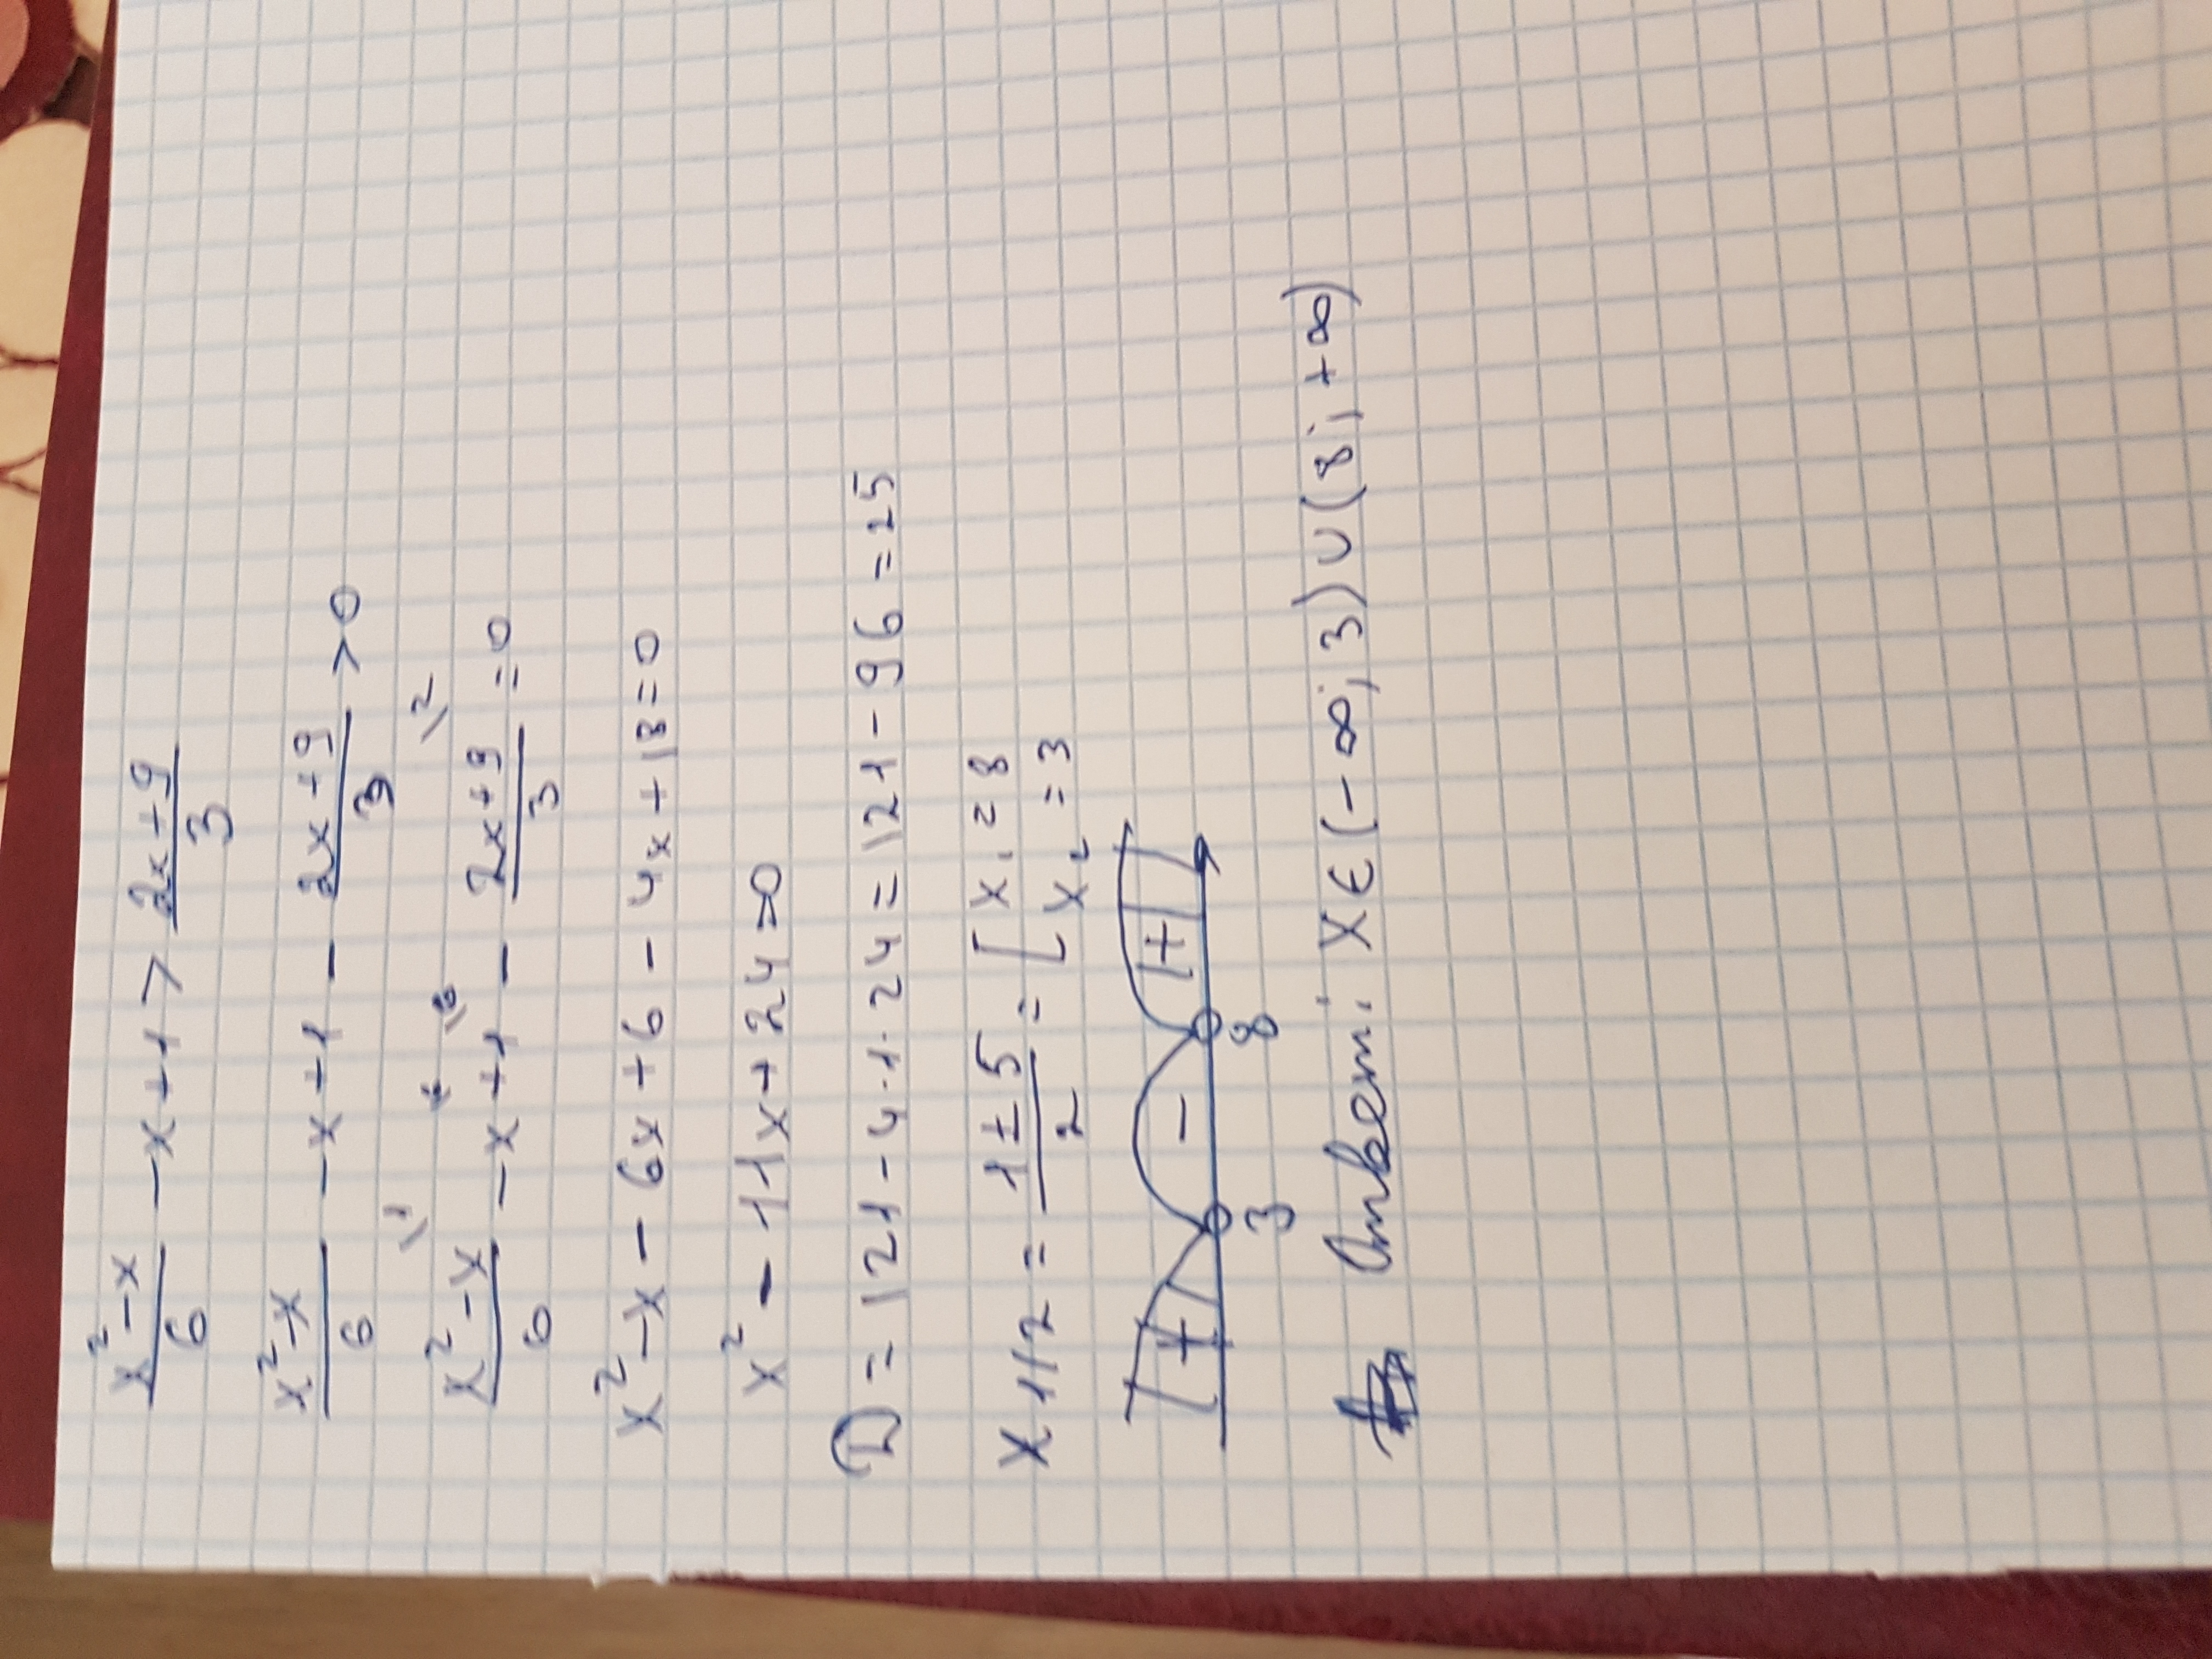 x² - x / 6 - x + 1 > 2x + 9 / 3
x² - x / 6 - x + 1 - 2x + 9 / 3 > 0
x² - x / 6 \1 - x \6 + 1 \6 - 2x + 9 / 3 \2 = 0
x² - x - 6x + 6 - 4x + 18 = 0
x² - 11x + 24 = 0
D = 121 - 4 · 1 · 24 = 121 - 96 = 25
x 1/2 = 11 ± 5 / 2 = [ x₁ = 8
x₂ = 3
+ - +
3 8
Ответ: x ∈ (-∞; 3) ∪ (8; +∞)